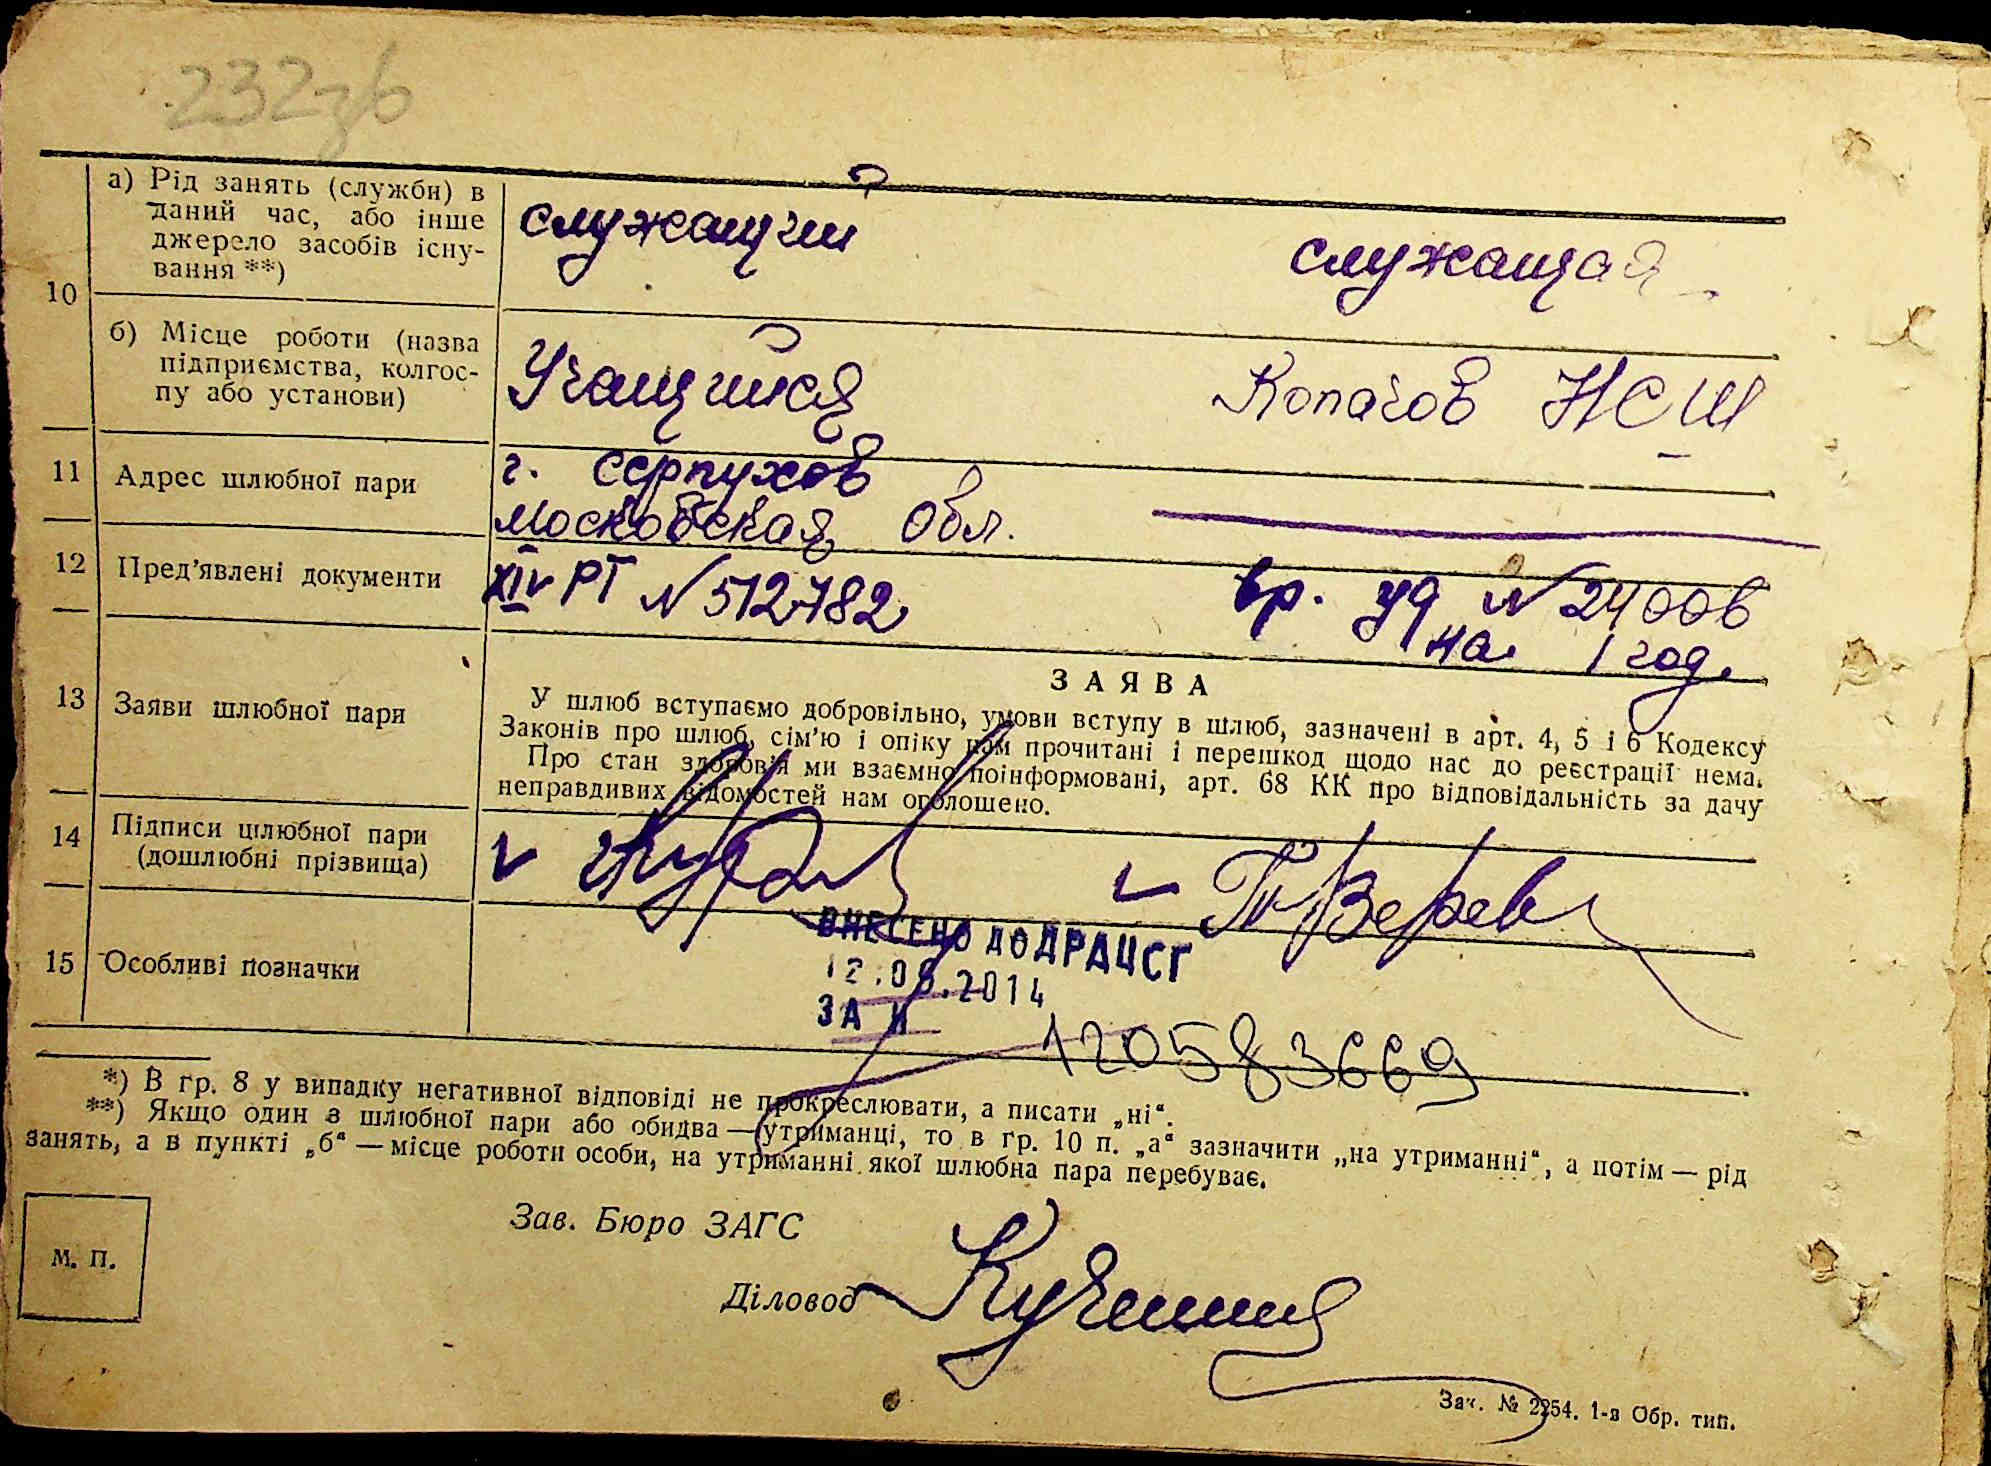 232зв
а) Рід занять (служби) в
даний час, або інше
джерело засобів існу-
вання **)
служащий
служащая
10
б) Місце роботи (назва
підприємства, колгос-
пу або установи)
Учащийся
Копачов НСШ
11
Адрес шлюбної пари
г. Серпухов
Московская обл.
12
Пред'явлені документи
XIV РТ № 512782
вр. уд № 24006
на 1 год.
13
Заяви шлюбної пари
ЗАЯВА
У шлюб вступаємо добровільно, умови вступу в шлюб, зазначені в арт. 4, 5 і 6 Кодексу
Законів про шлюб, сім'ю і опіку нам прочитані і перешкод щодо нас до реєстрації нема.
Про стан здоров'я ми взаємно поінформовані, арт. 68 КК про відповідальність за дачу
неправдивих відомостей нам оголошено.
14
Підписи шлюбної пари
(дошлюбні прізвища)
15
Особливі позначки
ВНЕСЕНО ДО ДРАЦСГ
12.08.2014
ЗА №
120583669
*) В гр. 8 у випадку негативної відповіді не прокреслювати, а писати „ні“.
**) Якщо один з шлюбної пари або обидва — утриманці, то в гр. 10 п. „а“ зазначити „на утриманні“, а потім — рід
занять, а в пункті „б“ — місце роботи особи, на утриманні якої шлюбна пара перебуває.
М. П.
Зав. Бюро ЗАГС
Діловод
Зач. № 2254. 1-я Обр. тип.